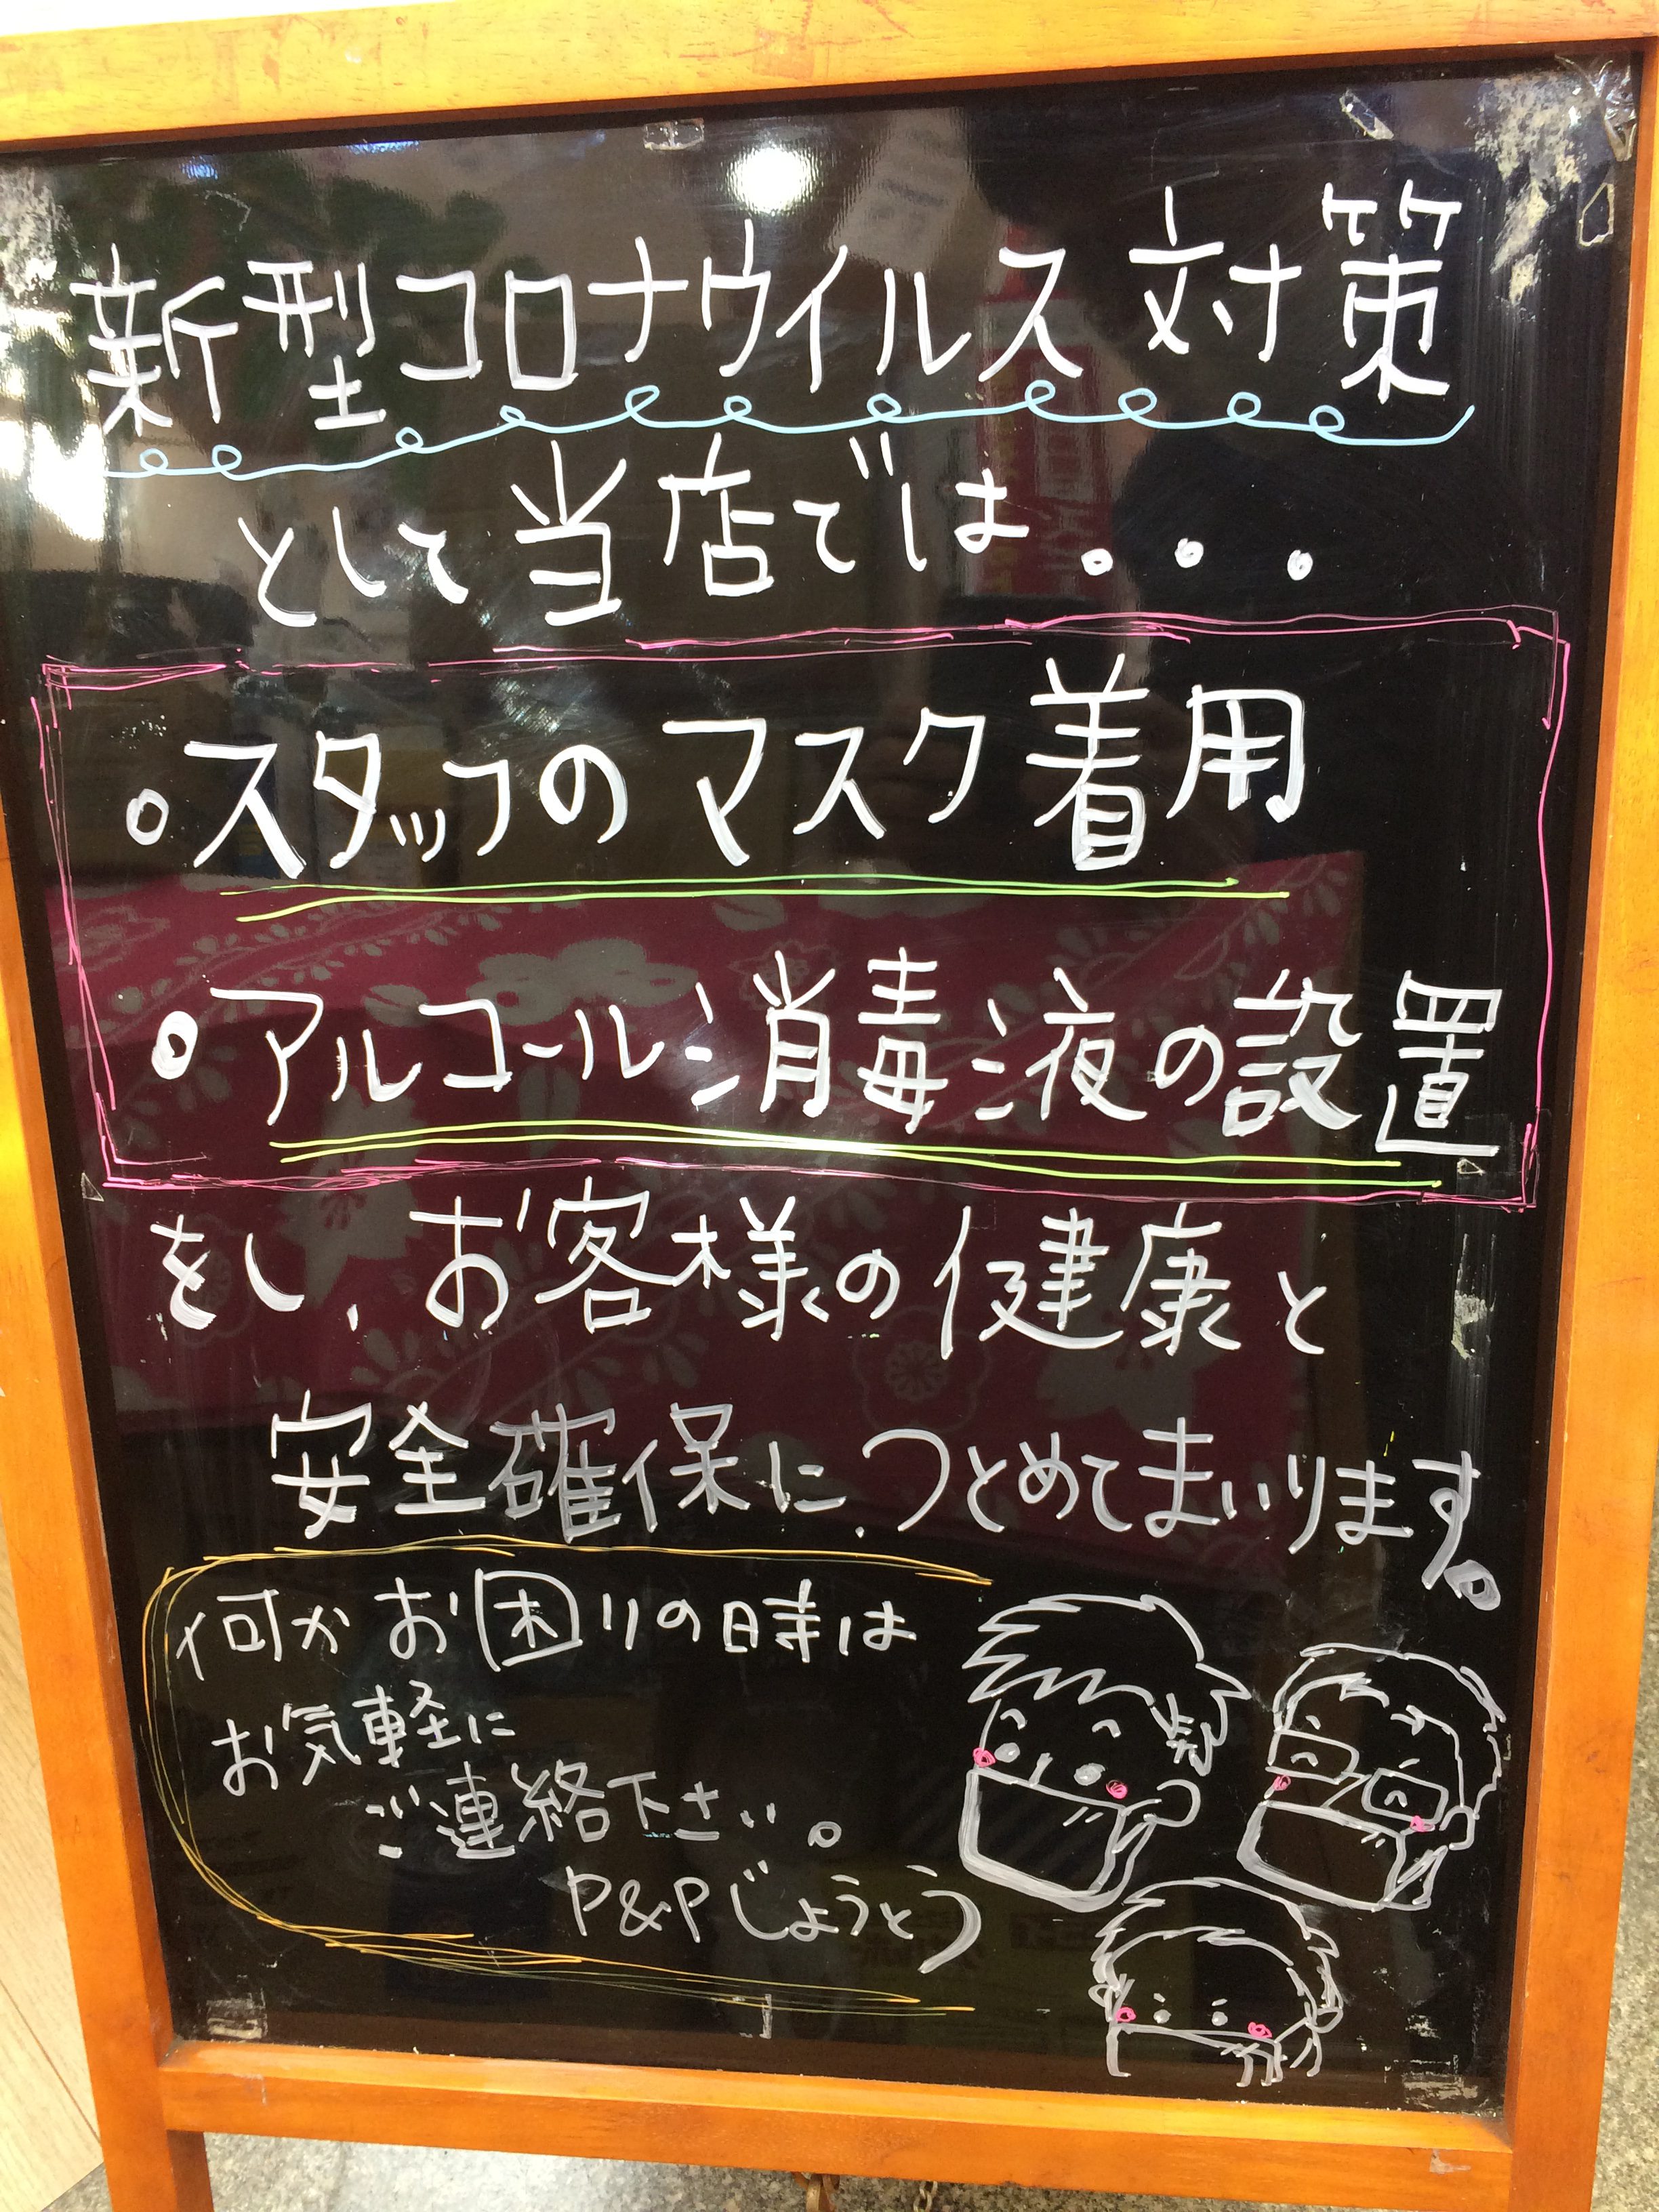 新型コロナウイルス対策
として当店では。。。
。スタッフのマスク着用
。アルコール消毒液の設置
をし、お客様の健康と
安全確保に、つとめてまいります。
何かお困りの時は
お気軽に
ご連絡下さい。
P&Pじょうとう